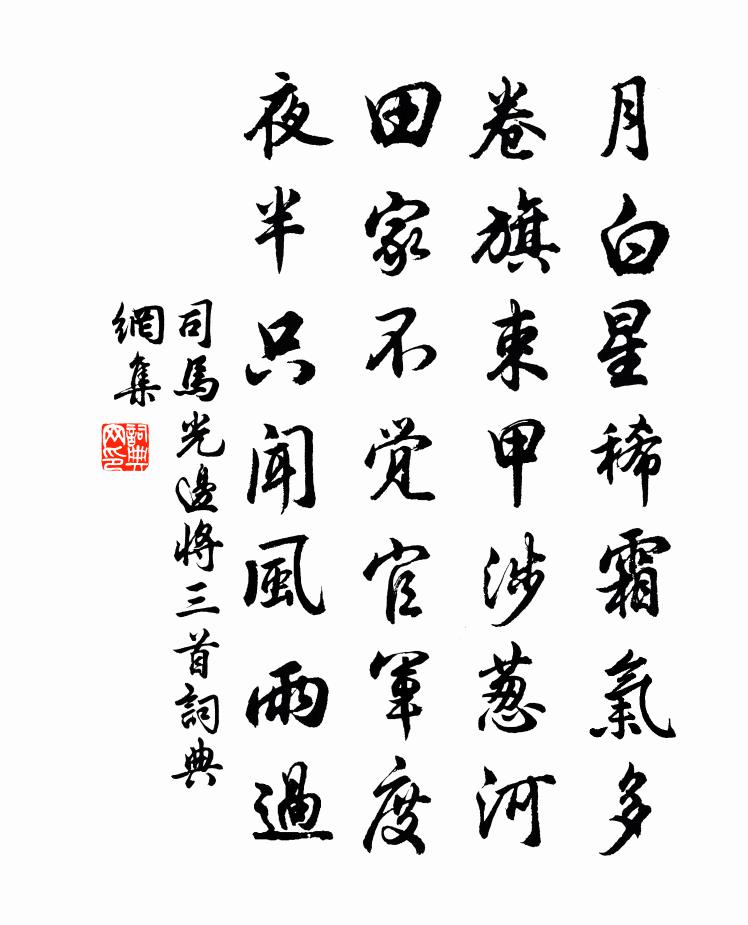 月白星稀霜氣多
卷旗束甲涉葱河
田家不觉官軍度
夜半只闻風雨過
司馬光邊將三首詞典
網集
詞典
网印